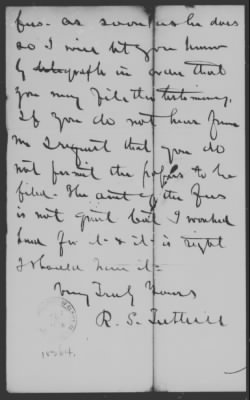 fees. as soon as he does
so I will let you know
by telegraph in order that
you may file the testimony.
If you do not hear from
me I request that you do
not permit the papers to be
filed. The amt of the fees
is not great but I worked
hard for it & it is right
I should have it=
Very Truly Yours
R. S. Tuthill